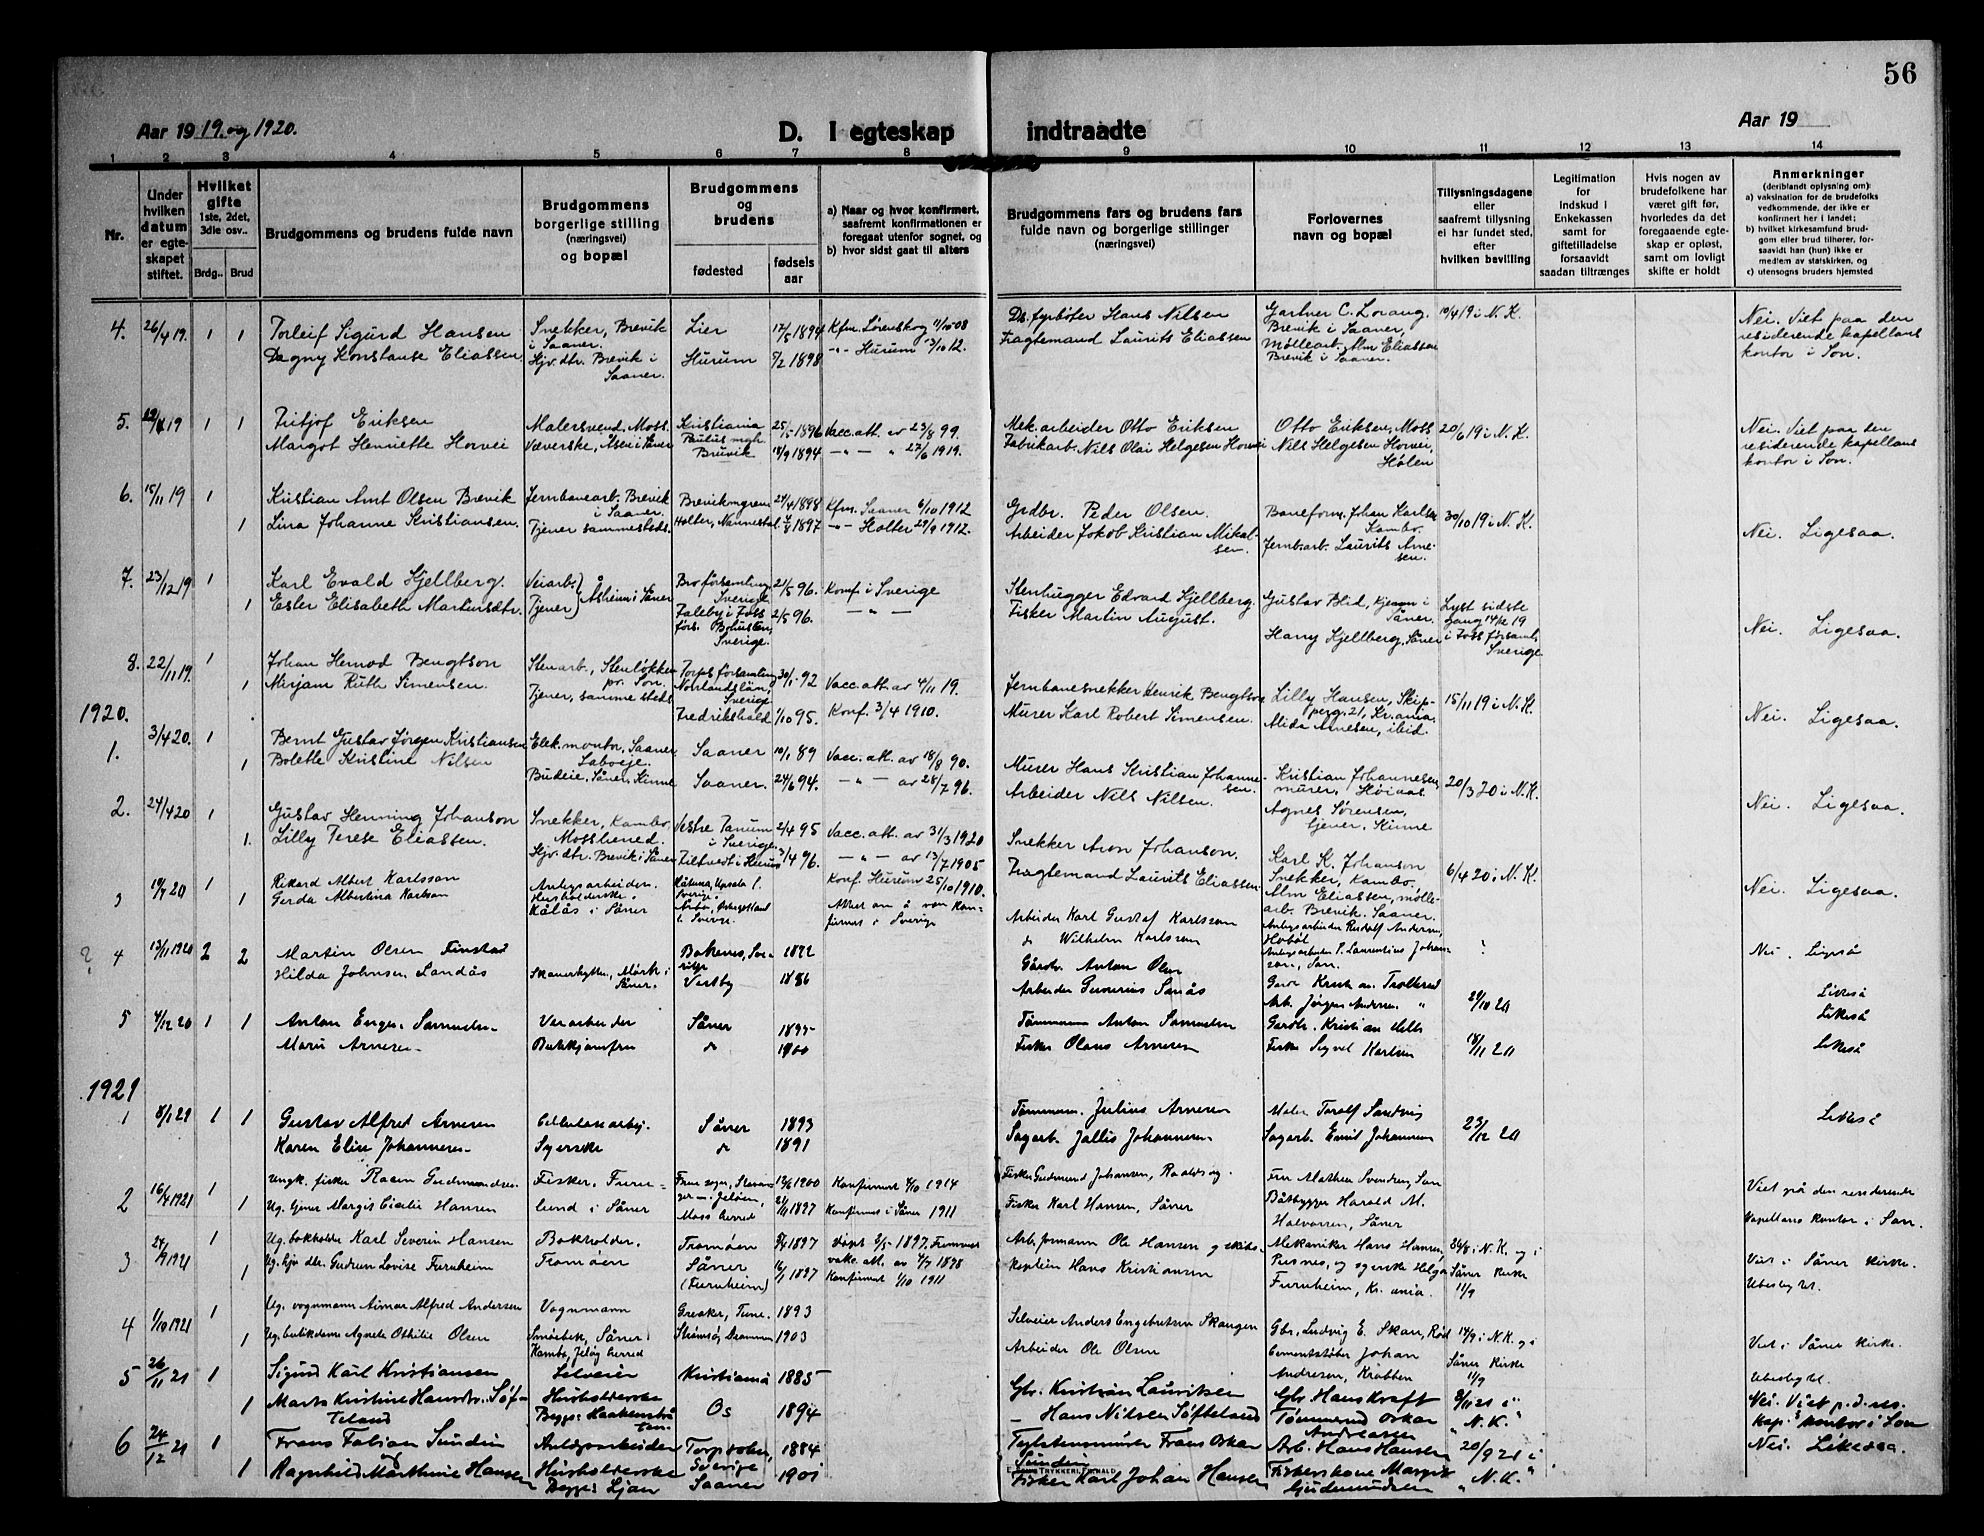 56
Aar 1919. og 1920.
D. I egteskap indtraadte
Aar 19
1 2 3 4 5 6 7 8 9 10 11 12 13 14
Nr.
Under hvilken datum er egteskapet stiftet.
Hvilket gifte 1ste, 2det, 3dle osv..
Brdg.. Brud
Brudgommens og brudens fulde navn
Brudgommens borgerlige stilling (næringsvei) og bopæl
Brudgommens og brudens
fødested
fødsels aar
a) Naar og hvor konfirmert, saafremt konfirmationen er foregaat utenfor sognet, og
b) hvor sidst gaat til alters
Brudgommens fars og brudens fars fulde navn og borgerlige stillinger (næringsvei)
Forlovernes navn og bopæl
Tillysningsdagene eller saafremt tillysning ei har fundet sted, efter hvilken bevilling
Legitimation for Indskud i Enkekassen samt for giftetilladelse forsaavidt saadan tiltrænges
Hvis nogen av brudefolkene har været gift før, hvorledes da det foregaaende egteskap er opløst, samt om lovligt skifte er holdt
Anmerkninger
(deriblandt oplysning om):
a) vaksination for de brudefolks vedkommende, der ikke er konfirmert her i landet;
b) hvilket kirkesamfund brudgom eller brud tilhører, forsaavidt han (hun) ikke er medlem av statskirken, og
c) utensogns bruders hjemsted
4. 26/4 19. 1 1 Torleif Sigurd Hansen Snekker, Brevik i Saaner. Lier 17/5 1894 Kfm. Lørenskog 11/10-08 Ds. fyrbøter Hans Nilsen Gartner C. Lorang. Brevik i Saaner, 10/4 19 i N. K. Nei. Viet paa den residerende kapellans kontor i Son.
Dagny Konstanse Eliassen Hjv. dtr. Brevik i Saaner. Hurum 7/2 1898 -"- Hurum 13/10 12. Fragtemand Laurits Eliassen Møllearb. Alm Eliassen Brevik i Saaner.
5. 1 1 Fritjof Eriksen Malersvend, Moss Kristiania Paulus mgh. 25/5 1896 Vacc. att. av 23/8 99. Mek. arbeider Otto Eriksen Otto Eriksen, Moss 20/6 19 i N. K. Nei. Viet paa den residerende kapellans kontor i Son.
Margot Henriette Horvei Væverske, Åsen i Såner Bruvik 18/9 1894 -"- " 27/6 1919. Fabrikarb. Nils Olai Helgesen Horvei Nils Helgesen Horvei, Hølen
6. 15/11 19 1 Kristian Arnt Olsen Brevik Jernbanearb. Brevik i Saaner. 24/4 1898 Kfm. Saaner 6/10 1912 Grdbr. Peder Olsen. Baneform. Johan Karlsen Kambo. 30/10 19 i N. K.
1 Lina Johanne Kristiansen. Tjener sammesteds. Holter, Nannestad. 1897 -"- Holter 29/9 1912. Arbeider Jakob Kristian Mikalsen. Jernb. arb. Laurits Arnesen. Nei. Ligesaa.
7. 23/12 19 1 Karl Evald Hjellberg. Veiarb. } Åsheim i Såner Bro församling Sverige 21/5 96. Konf. i Sverige Stenhugger Edvard Hjellberg. Gustav Blid, Kjenn i Såner. Lyst sidste gang 14/12 19 i Foss församl. Sverige
1 Ester Elisabeth Martinsdtr. Tjener Faleby i Foss förs. Bohuslen, Sverige. 2/5 96. -"- Fisker Martin August. Harry Hjellberg, Såner Nei. Ligesaa.
8. 22/11 19. 1 Johan Hernod Bengtson Stenarb., Stenløkken pr. Son. Torps församling Norlandslän, Sverige 30/1 92 Vacc. att. av 4/11 19. Jernbanesnekker Henrik Bengtson Lilly Hansen, Skippergt. 21, Kr.ania. 15/11 19 i N. K.
1 Mirjam Ruth Simensen. Tjener, samme steds Fredrikshald 1/10 95. Konf. 3/4 1910. Murer Karl Robert Simensen. Alida Arnesen, ibid. Nei. Ligesaa.
1920.
1. 3/4 20. 1 Bernt Gustav Jørgen Kristiansen Elek. montør, Saaner Saaner 10/1 89 Vacc. att. av 18/8 90. Murer Hans Kristian Johannesen. Kristian Johannesen, murer, 20/3 20 i N. K.
1 Bolette Kristine Nilsen Budeie, Såner, Kinne Saaner. 24/6 94. -"- av 28/7 96. Arbeider Nils Nilsen. Agnes Sørensen, tjener, Kinne Nei. Ligesaa.
2. 24/4 20 1 Gustav Henning Johanson Snekker, Kambo, Mossherred. Vestre Tanum i Sverige. 2/4 95 Vacc. att. av 31/3 1920 Snekker Aron Johanson. Karl K. Johanson Snekker, Kambo. 6/4 20 i N. K.
1. Lilly Terese Eliassen. Hjv. dtr. Brevik i Såner Filtvedt i Hurum 3/4 96. -"- av 13/7 1905 Konf. Hurum 25/10 1910. Fragtemand Laurits Eliassen Alm Eliassen, møllearb. Brevik. Saaner. Nei. Ligesaa.
3 1 Rikard Albert Karlsson Anlegsarbeider. Håtuna, Upsala l. Sverige. Arbeider Karl Gustaf Karlsson Anlegsarbeider Rudolf Andersen, Hobøl
1 Gerda Albertina Karlson Husholderske, Kålås i Såner Attest om å være konfirmert i Sverige do Wilhelm Karlsson Anlegsarbeider P. Laurentius Johansson, Son.
? 4 13/11 1920 2 2 Martin Olsen Finstad Bokenes, Sverige 1872 Gårdbr. Anton Olsen Nei. Ligeså
Hilda Johnsen Sandås Såner. Vestby 1886 Arbeider Sanås Arb. Jørgen Andersen " 29/10 20 Likeså
5 4/12 20 1 1 Anton Samuelsen Veiarbeider Såner 1895 Tømmerm. Anton Samuelsen Gårdbr. Kristian Likeså
Marie Arnesen Butikkjomfru do 1900 Fisker Olaus Arnesen Fisker Sigvel Karlsen 18/11 20 Likeså
1921
1 8/1 21 1 1 Gustav Alfred Arnesen Cellulosearbej. Såner 1893 Tømmerm. Julius Arnesen Maler Toralf Sandvig 23/12 20 Likeså
Karen Elise Johannesen Syerske do 1891 Sagarb. Jallis Johannesen Sagarb. Emil Johannesen
2 16/4 1921 1 Ungk. fisker Gudmundsen Fisker, Furulund i Såner 12/6 1900 Konfirmert 4/10 1914 Fisker Gudmund Johansen, Fru Mathea Svendsen, Son Viet på den residerende kapellans kontor i Son.
1 Ug. tjener Margit Cicilie Hansen Jeløen, Moss herred 1897 Konfirmert i Såner 1911 Fisker Karl Hansen, Såner Båtbygger Harald M. Halvorsen, Såner
3 24/9 1921 1 Ug. bokholder Karl Severin Hansen Bokholder. Tromøen Tromøen 1897 Døpt 2/5 1897. Fremvist vakc. att. av 4/7 1898 Arb. formann Ole Hansen Mekaniker Hans Hansen, Pusnes, og syerske Helga Furuheim, Kr.ania. 26/8 i N. K. og i Såner kirke 11/9 Viet i Såner kirke. Ubeslegtet.
1 Ug. hjv. dtr. Gudrun Lovise Furuheim Såner (Furuheim) 16/1 1897 Konfirmert 1/10 1911 og skibskaptein Hans Kristiansen
4 1/10 1921 1 Ug. vognmann Aimar Alfred Andersen Vognmann Greaker, Tune. 1893 Selveier Anders Engebretsen Skangen Gbr. Ludvig E. Skan, Rød 14/9 i N. K. og i Såner kirke 11/9
1 Ug. butikdame Agnete Othilie Olsen Såner Kambo, Jeløy herred Strømsø, Drammen 1903 Arbeider Ole Olsen Cementstøber Johan Andresen, Krabben Viet i Såner kirke. Ubeslegtet.
5 26/11 21 1 Sigurd Karl Kristiansen Selveier Kristiania 1885 Gbr. Kristian Lauritsen Gbr. Hans Kraft 8/11 21 i N. K. Nei. Viet p. d. res. kap.s kontor i Son
1 Marta Kristine Hansdtr. Søfteland Husholderske Os 1894 — Hans Nilsen Søfteland Tømmermd Oskar Andreassen
6 24/12 21 1 Frans Fabian Sundin Anlægsarbeider Torp sogn, Sverige 1884 Teglstensmurer Frans Oskar Sunden Arb. Hans Hansen 20/9 21 i " N. K. Nei. Likesaa.
1 Ragnhild Marthine Hansen Husholderske Begge: Ljan Saaner 1901 Fisker Karl Johan Hansen Fiskerkone Margit Gudemundsen